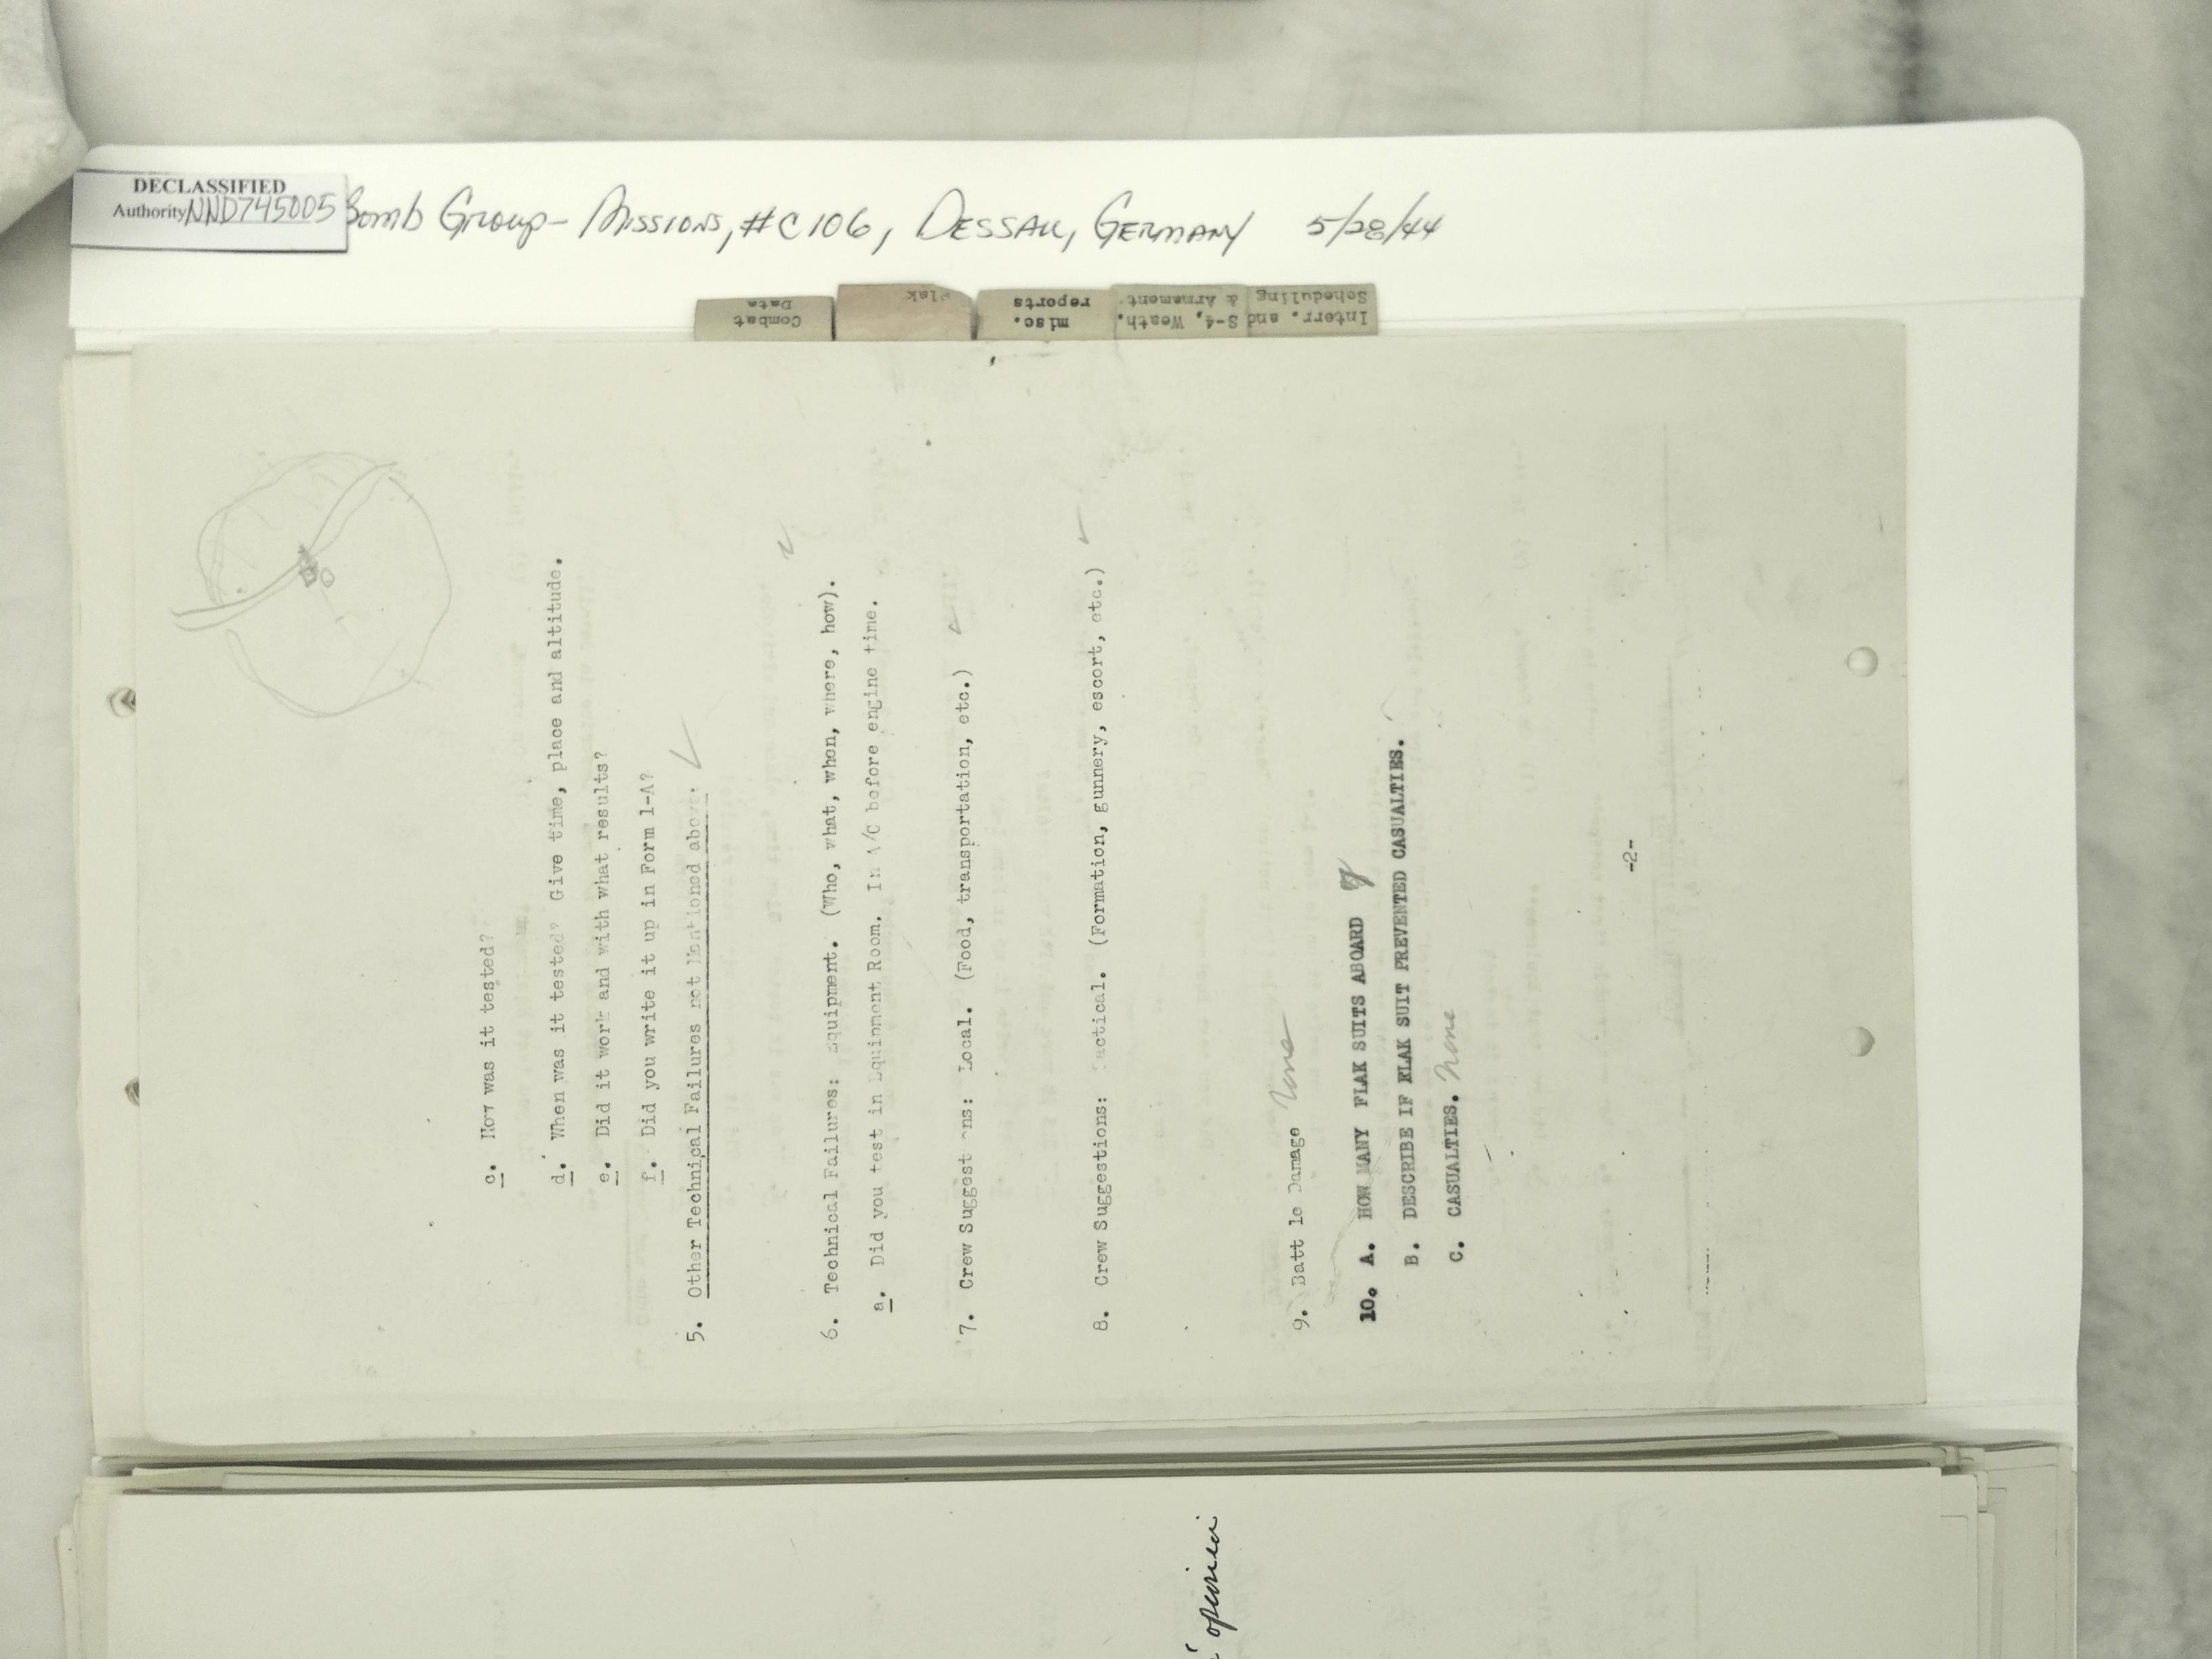 DECLASSIFIED
Authority NND745005
Bomb Group - Missions, #C106, Dessau, Germany 5/28/44
Combat
Data
Flak
misc.
reports
S-4, Weath.
& Armament
Interr. and
Scheduling
c. How was it tested?
d. When was it tested? Give time, place and altitude.
e. Did it work and with what results?
f. Did you write it up in Form 1-A?
5. Other Technical Failures not Mentioned above:
6. Technical Failures: Equipment. (Who, what, when, where, how).
a. Did you test in Equipment Room. In A/C before engine time.
7. Crew Suggest ns: Local. (Food, transportation, etc.)
8. Crew Suggestions: Tactical. (Formation, gunnery, escort, etc.)
9. Batt le Damage None
10. A. HOW MANY FLAK SUITS ABOARD
B. DESCRIBE IF FLAK SUIT PREVENTED CASUALTIES.
C. CASUALTIES. None
-2-